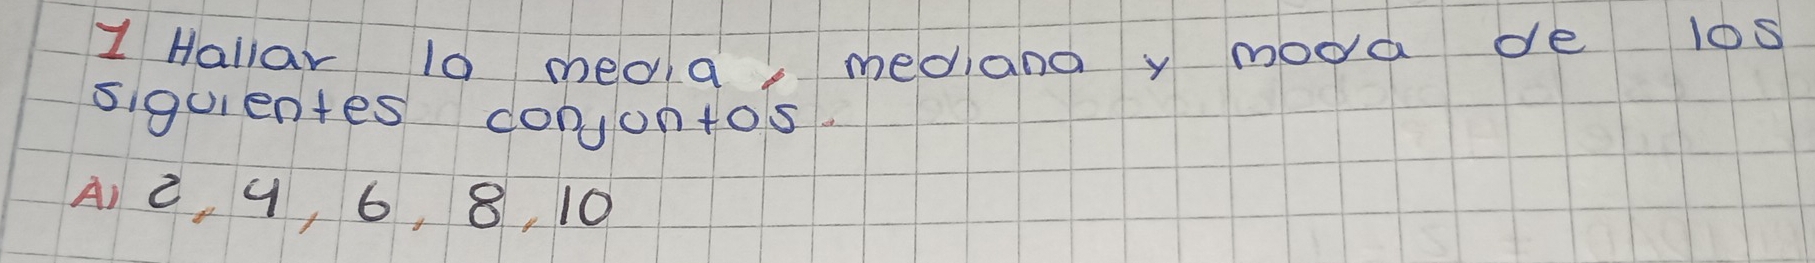 1 Hallar la media, mediana y moda de los
siguientes conjuntos.
A) 2, 4, 6, 8, 10